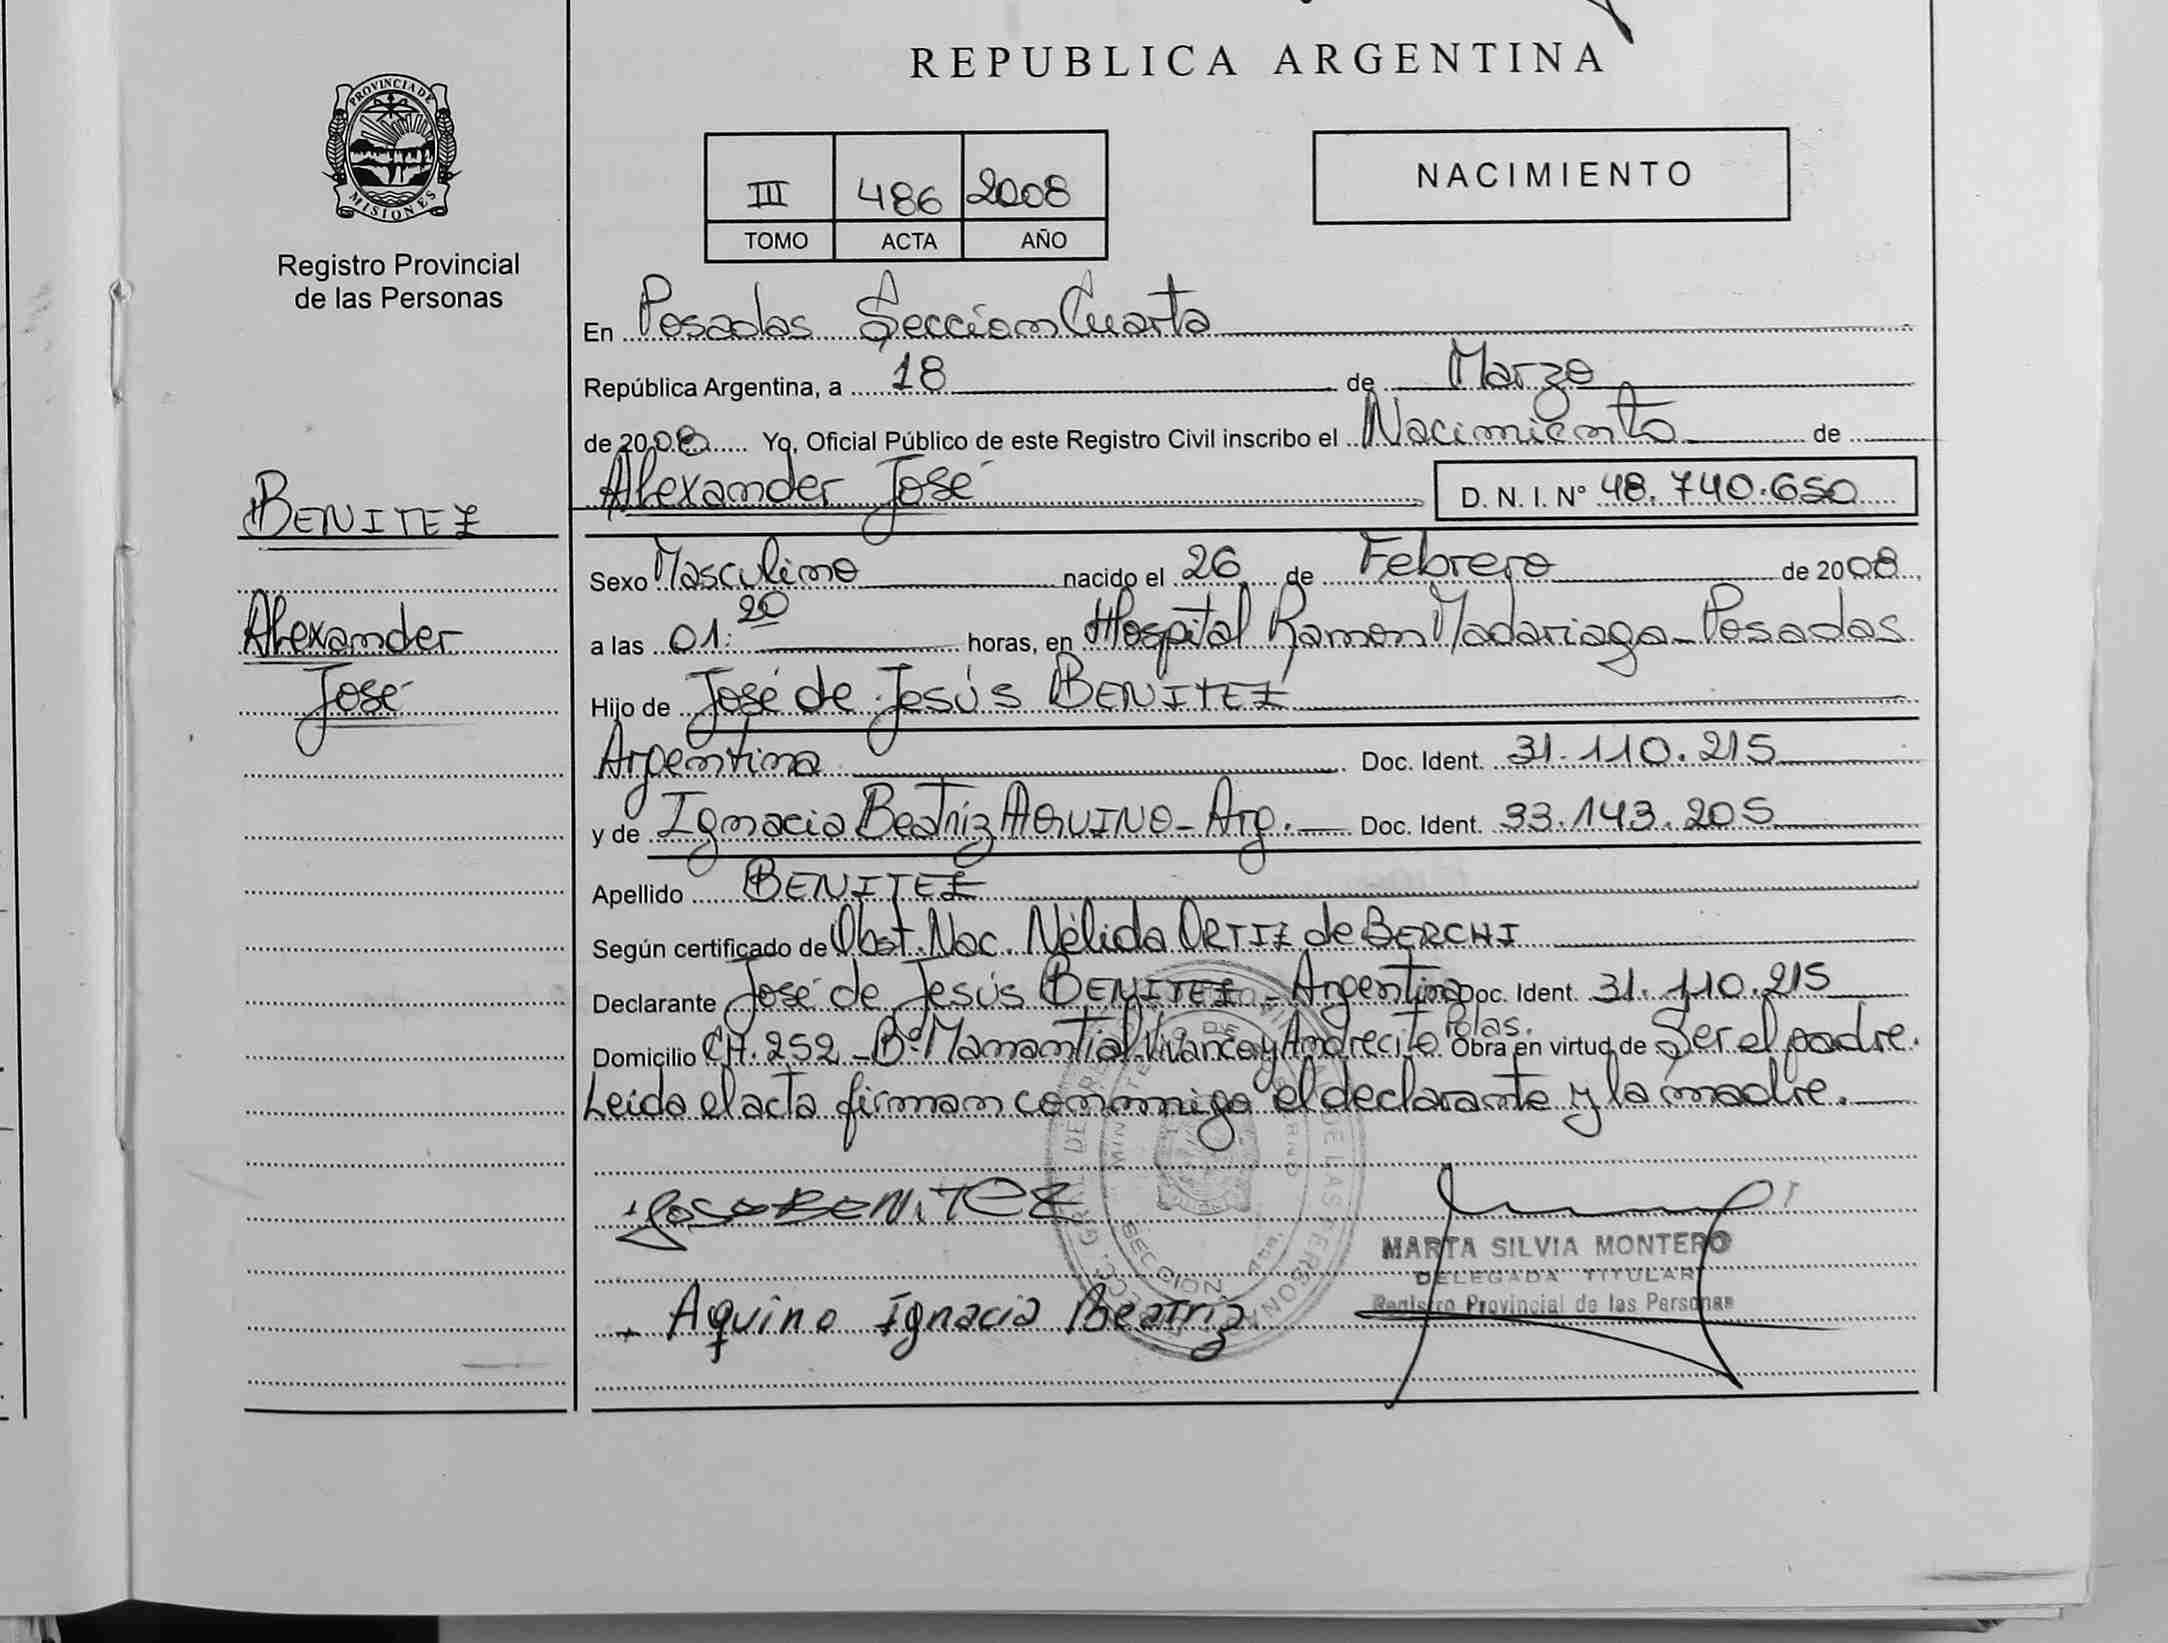 REPUBLICA ARGENTINA
PROVINCIA DE
MISIONES
Registro Provincial
de las Personas
III 486 2008
TOMO ACTA AÑO
NACIMIENTO
En Posadas Sección Cuarta
República Argentina, a 18 de Marzo
de 2008 Yo, Oficial Público de este Registro Civil inscribo el Nacimiento de
Alexander José D. N. I. N° 48.740.650
BENITEZ
Alexander
José
Sexo Masculino nacido el 26 de Febrero de 2008
a las 01:20 horas, en Hospital Ramon Madariaga - Posadas
Hijo de José de Jesús BENITEZ
Argentina Doc. Ident. 31.110.215
y de Ignacia Beatríz AQUINO - Arg. Doc. Ident. 33.143.205
Apellido BENITEZ
Según certificado de Obst. Nac. Nélida ORTIZ de BERCHI
Declarante José de Jesús BENITEZ - Argentina Doc. Ident. 31.110.215
Domicilio CH. 252 - B° Manantial Vivanco y Andrecito Pdas. Obra en virtud de Ser el padre.
Leída el acta firman conmigo el declarante y la madre.
Jose BENiTEZ
MARTA SILVIA MONTERO
DELEGADA TITULAR
Registro Provincial de las Personas
Aquino Ignacia Beatriz